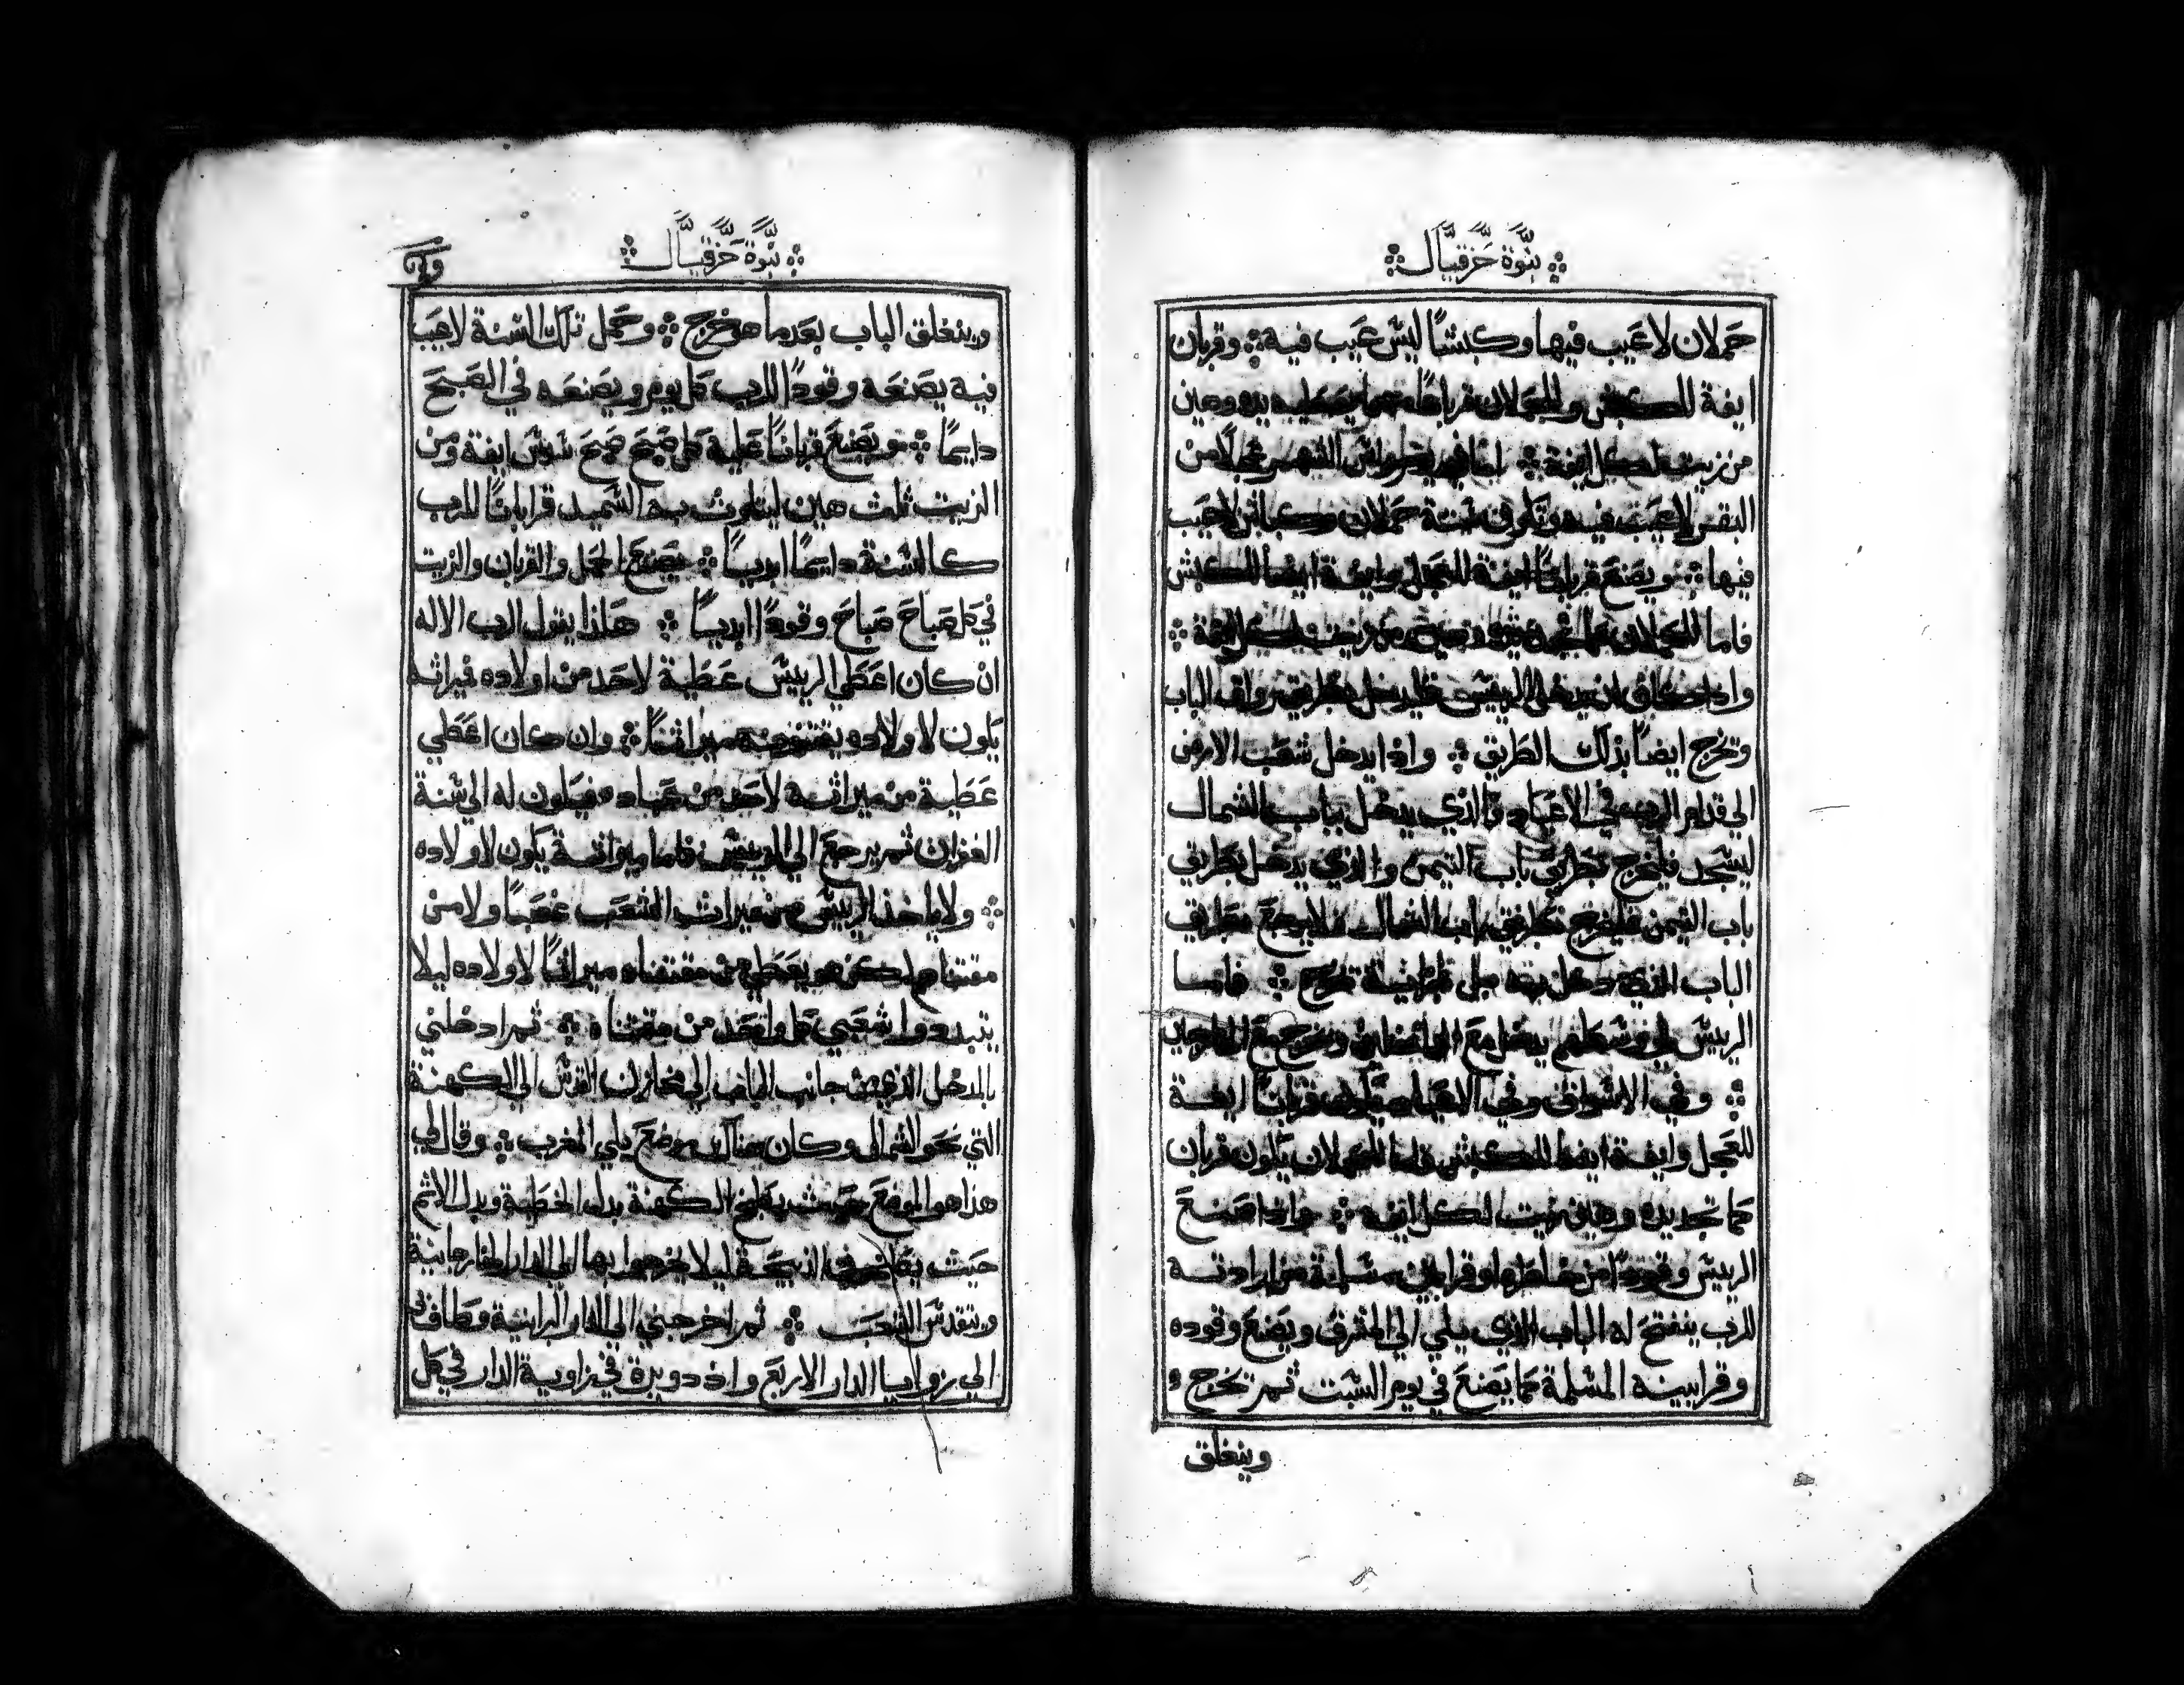 نبوة حزقيال
حملان لا عيب فيها وكبشًا ليس عيب فيه وقربان
ايفة للكبش وللحملان قربانًا يده وهين
من زيت لكل ايفة الشهر عجلًا من
البقر لا عيب فيه وتكون ستة حملان وكباش لا عيب
فيها ويصنع قربانًا ايفة للعجل وايفة ايضًا للكبش
فاما للحملان وهين من زيت لكل ايفة
واذا كان ان يدخل الرييس فليدخل بطريق رواق الباب
وتخرج ايضًا بذلك الطريق واذا يدخل شعب الارض
الي قدام الرب في الاعياد فالذي يدخل بباب الشمال
ليسجد فليخرج بطريق باب التيمن والذي يدخل بطريق
باب التيمن فليخرج بطريق باب الشمال فلا يرجع بطريق
الباب الذي دخل به بل تخرج فاما
الرييس في وسطهم يدخل مع الداخلين وتخرج مع الخارجين
وفي الاسواق وفي الاعياد يكون قربانًا ايفة
للعجل وايفة ايضًا للكبش فاما للحملان يكون قربان
كما تجد يده وهين زيت لكل ايفة واذا صنع
الرييس وقودًا من خاطره او قرابين مسلمة من ارادته
للرب ينفتح له الباب الذي يلي الي المشرق ويصنع وقوده
وقرابينه المسلمة كما يصنع في يوم السبت ثم تخرج و
وينغلق
نبوة حزقيال
وينغلق الباب بعد ما هو خرج وحمل تلك السنة لا عيب
فيه يصنعه وقودًا للرب كل يوم ويصنعه في الصبح
دايمًا ويصنع قربانًا عليه كل صبح صبح سدس ايفة ومن
الزيت ثلث هين ليتلوث به السميد قرابانًا للرب
كالسنة دايمًا ابديًا يصنع الحمل والقربان والزيت
في كل صباح صباح وقودًا ابديًا هاذا يقول الرب الاله
ان كان اعطي الرييس عطية لاحد من اولاده فيراثه
يكون لاولاده يقتنونه ميراثًا وان كان اعطي
عطية من ميراثه لاحد من عبيده فيكون له الي سنة
الغفران ثم يرجع الي الرييس فاما ميراثه يكون لاولاده
ولا ياخذ الرييس من ميراث الشعب غصبًا ولا من
مقتناهم لكن هو يعطي من مقتناه ميراثًا لاولاده ليلا
يتبددوا شعبي كل واحد من مقتناه ثم ادخلني
بالمدخل الذي من جانب الباب الي مخازن القدس الي الكهنة
التي نحو الشمال وكان هناك موضع يلي المغرب وقال لي
هذا هو الموضع حيث يطبخ الكهنة بدل الخطية وبدل الاثم
حيث الذبيحة ليلا يخرجوا بها الي الدار الخارجانية
ويتقدس الشعب ثم اخرجني الي الدار البرانية وطاف بي
الي زوايا الدار الاربع واذ دويرة في زاوية الدار في كل